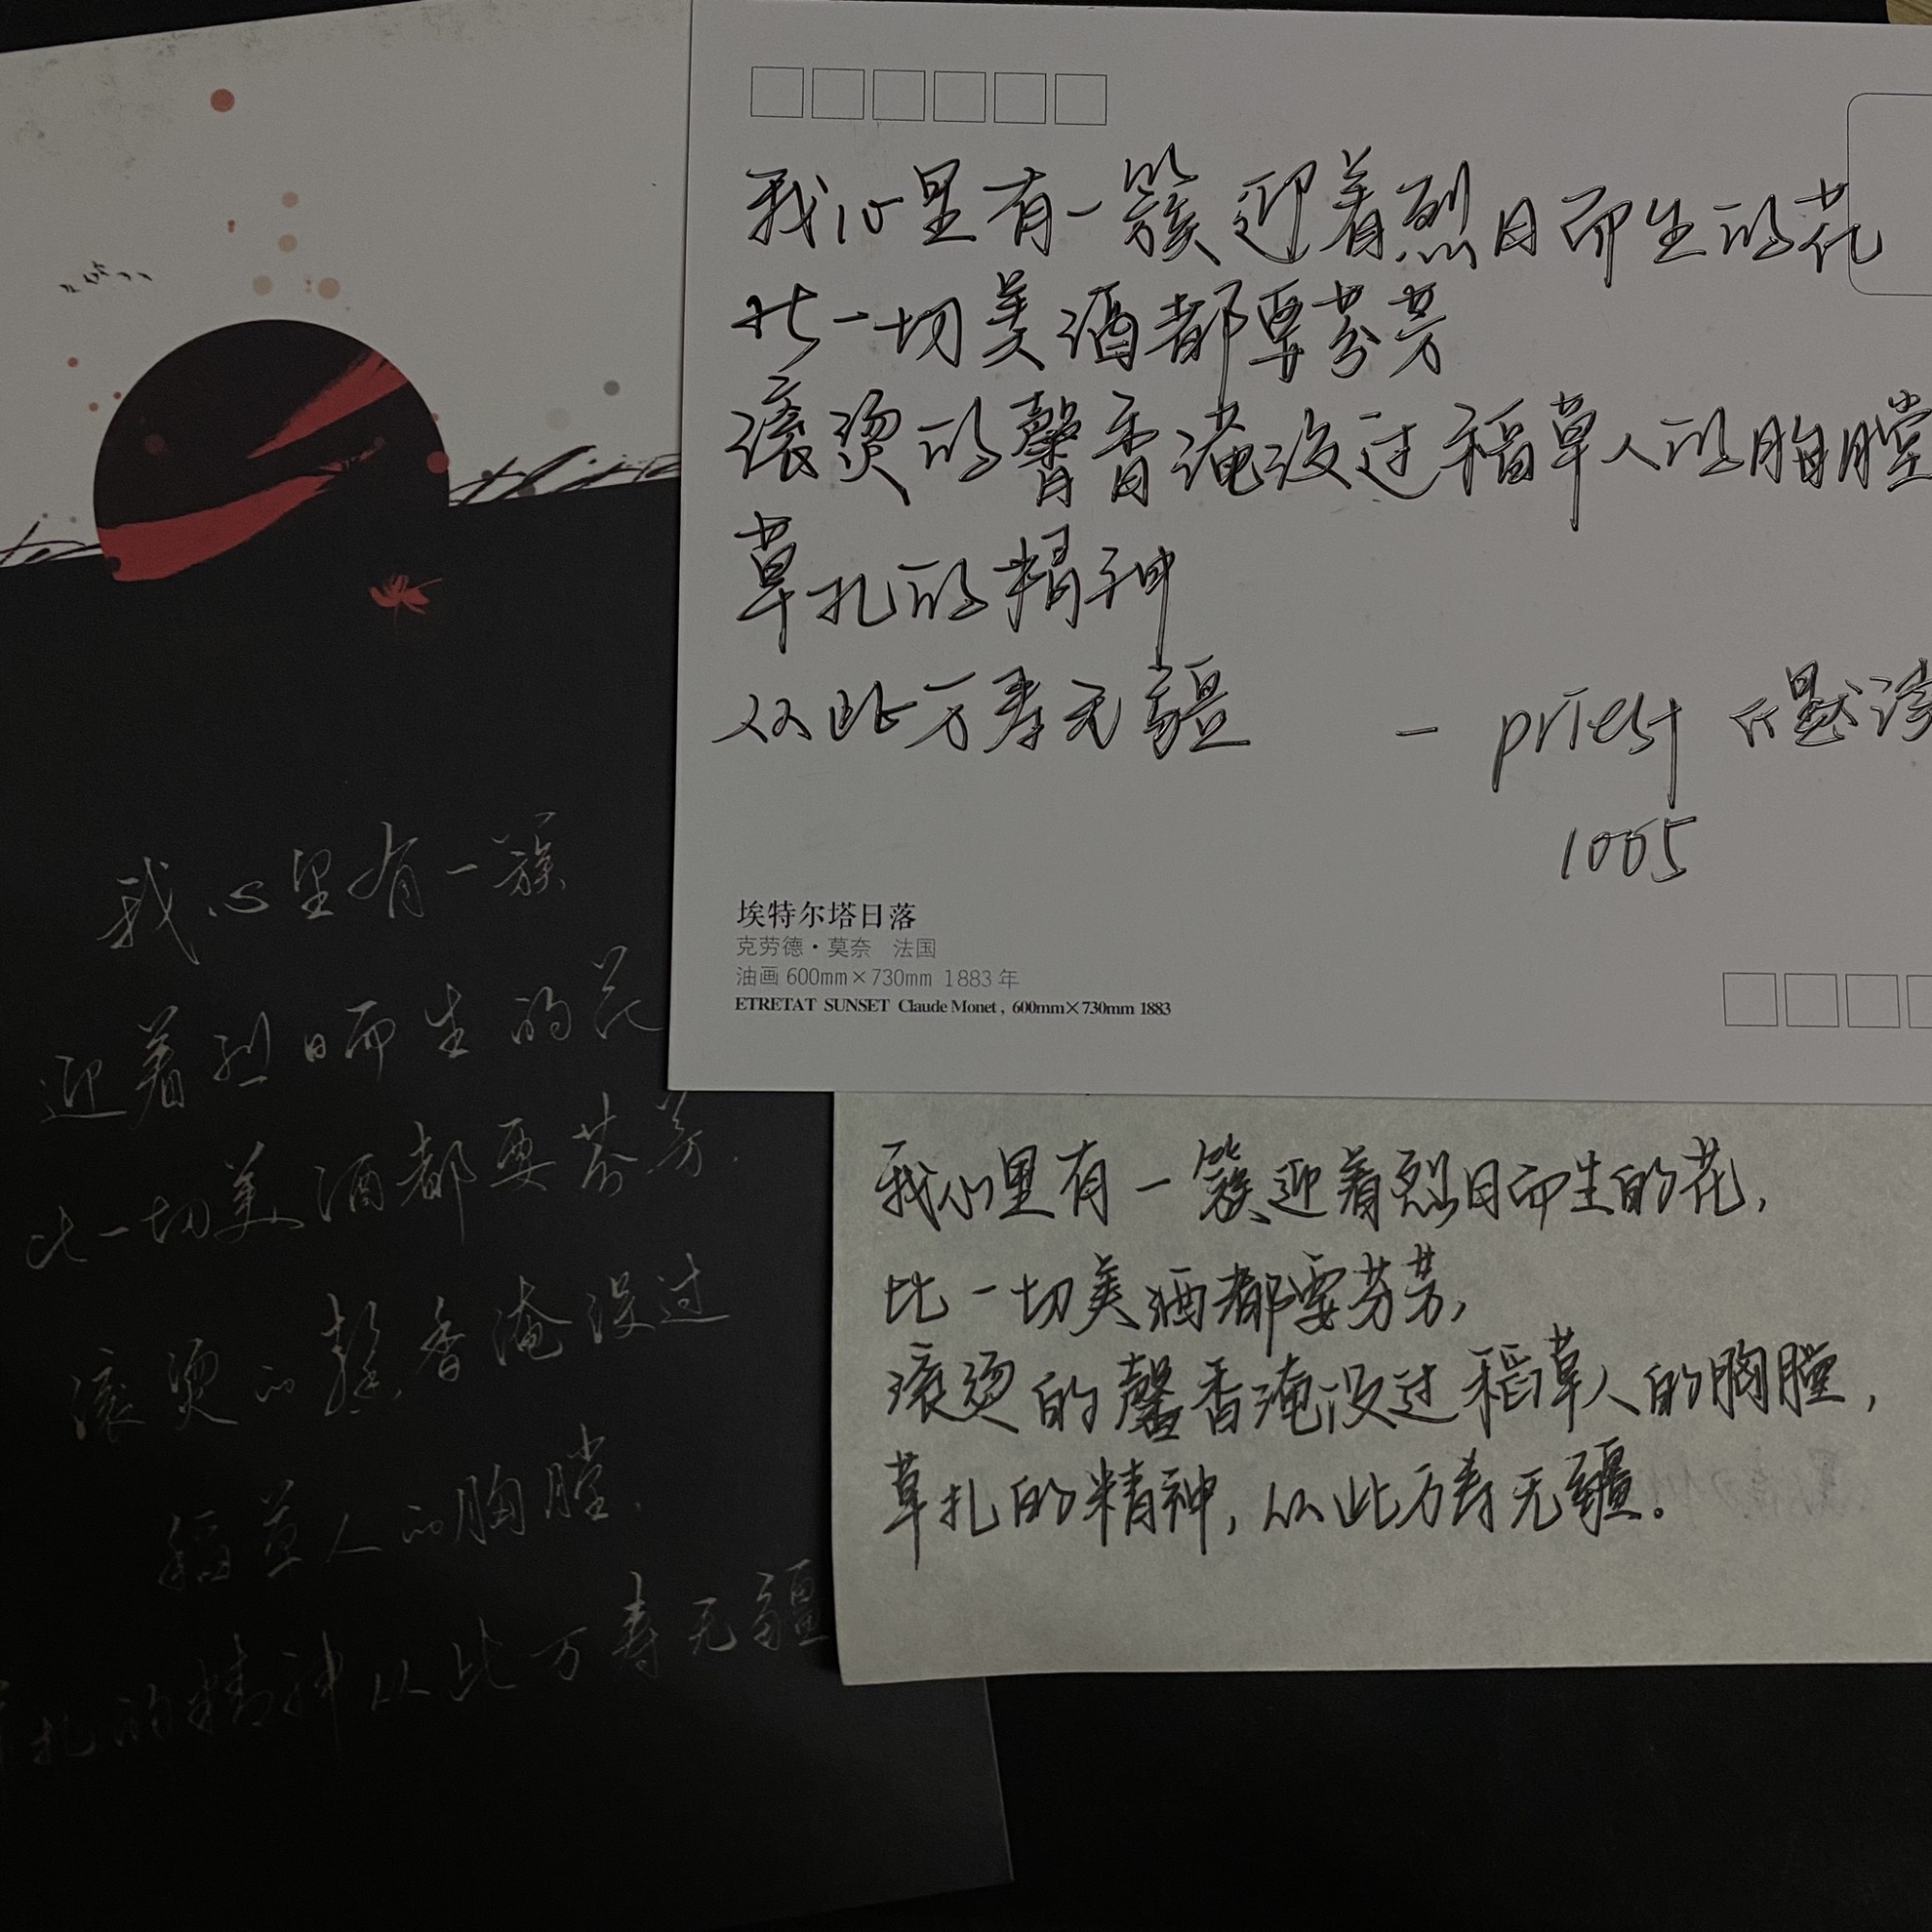 我心里有一簇迎着烈日而生的花
比一切美酒都要芬芳
滚烫的馨香淹没过稻草人的胸膛
草扎的精神
从此万寿无疆
— priest 《默读
1005
埃特尔塔日落
克劳德·莫奈 法国
油画 600mm×730mm 1883 年
ETRETAT SUNSET Claude Monet , 600mm×730mm 1883
我心里有一簇
迎着烈日而生的花
比一切美酒都要芬芳.
滚烫的馨香淹没过
稻草人的胸膛.
草扎的精神从此万寿无疆
我心里有一簇迎着烈日而生的花,
比一切美酒都要芬芳,
滚烫的馨香淹没过稻草人的胸膛,
草扎的精神,从此万寿无疆。